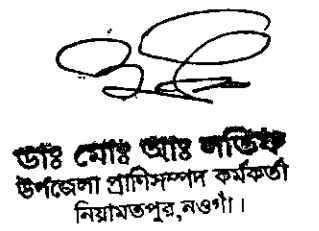 ডাঃ মোঃ আঃ লতিফ
উপজেলা প্রাণিসম্পদ কর্মকর্তা
নিয়ামতপুর,নওগাঁ।